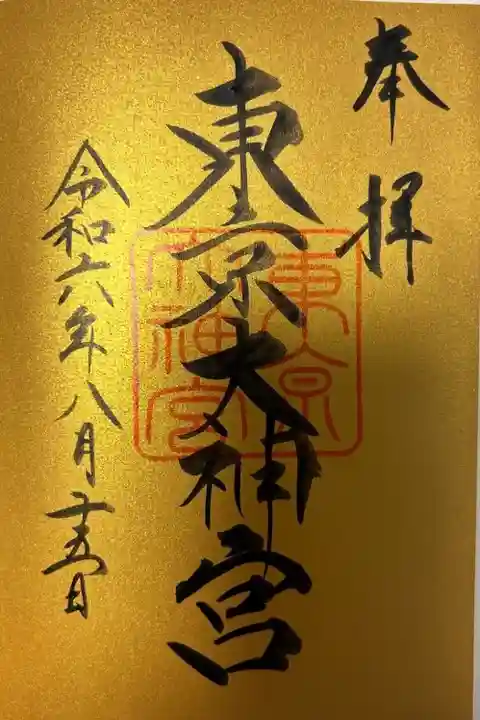 奉拝
東京大神宮
令和六年八月十五日
東京大神宮